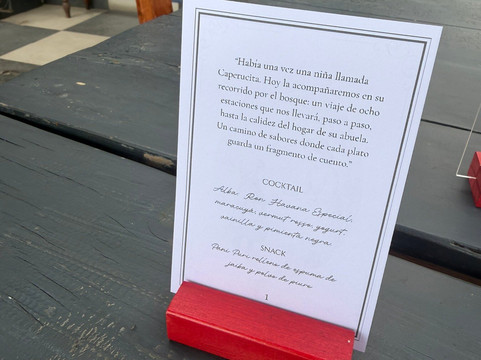 “Había una vez una niña llamada
Caperucita. Hoy la acompañaremos en su
recorrido por el bosque: un viaje de ocho
estaciones que nos llevará, paso a paso,
hasta la calidez del hogar de su abuela.
Un camino de sabores donde cada plato
guarda un fragmento de cuento.”
COCKTAIL
Alba: Ron Havana Especial,
maracuyá, vermut rosso, yogurt,
vainilla y pimienta negra
SNACK
Pani Puri relleno de espuma de
jaiba y polvo de piure
1